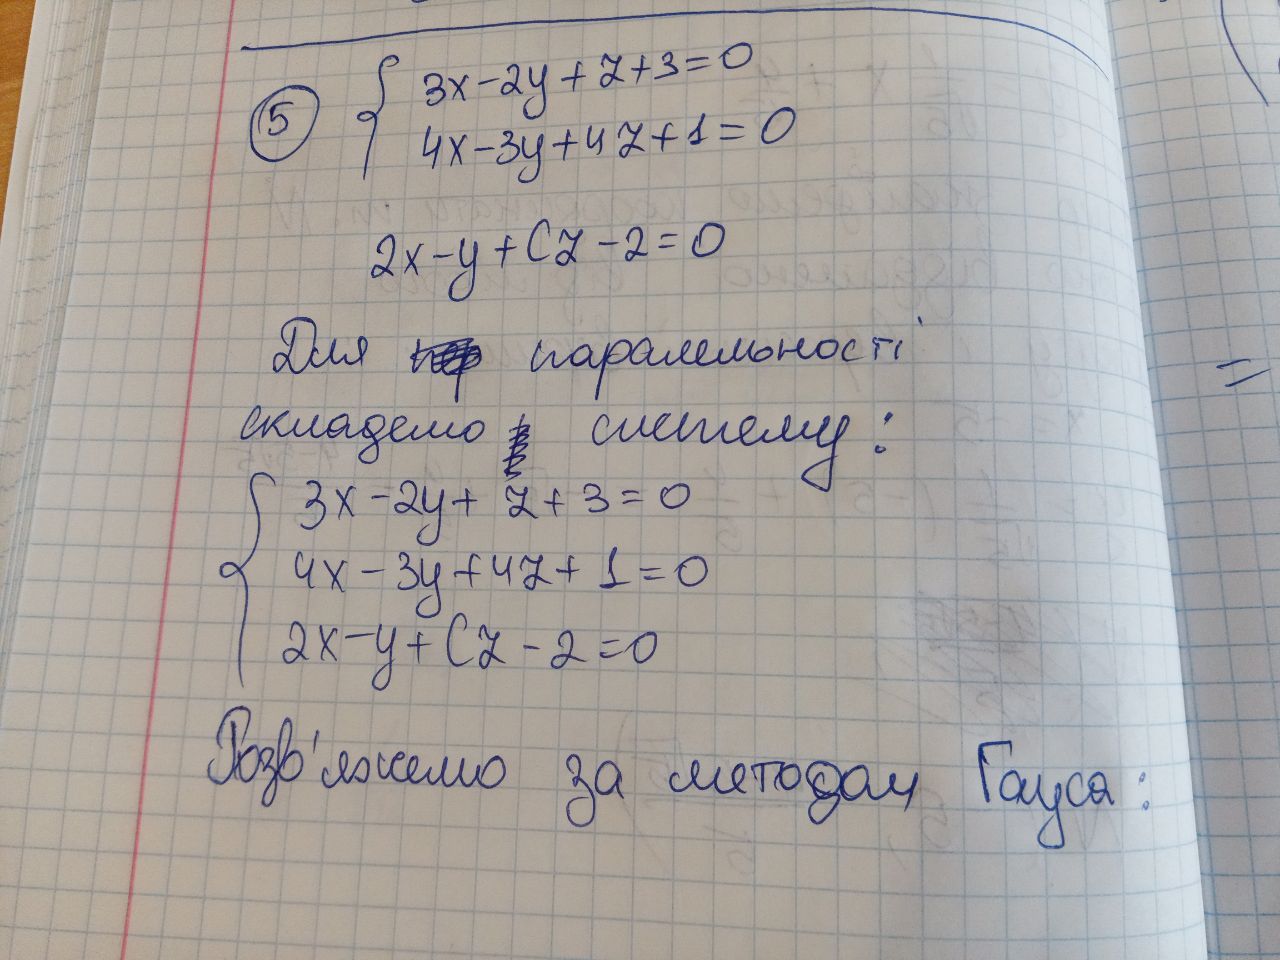 5 3x-2y+z+3=0
4x-3y+4z+1=0
2x-y+Cz-2=0
Для паралельності
складемо систему:
3x-2y+z+3=0
4x-3y+4z+1=0
2x-y+Cz-2=0
Розв'яжемо за методом Гауса: